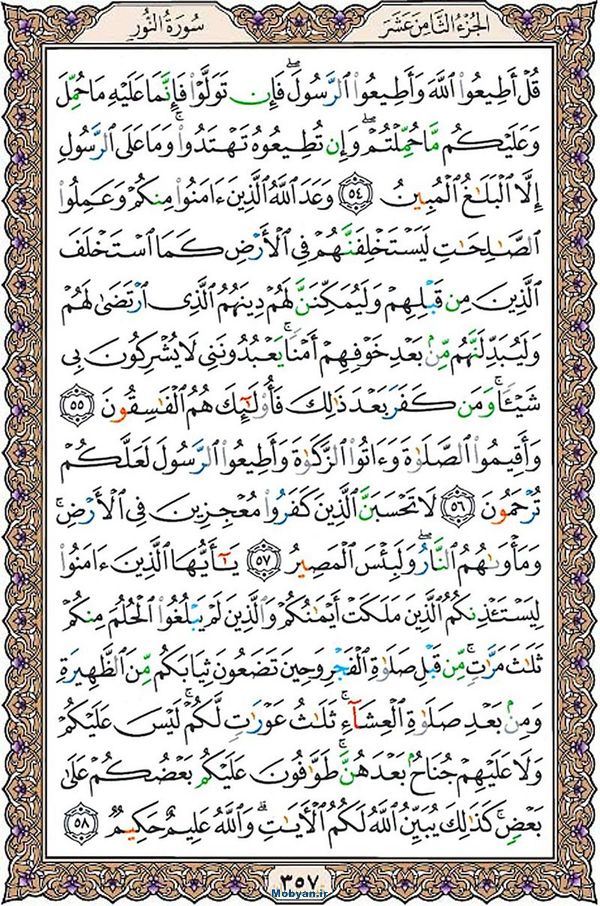 الجزء الثامن عشر
سورة النور
قُلْ أَطِيعُوا۟ ٱللَّهَ وَأَطِيعُوا۟ ٱلرَّسُولَ ۖ فَإِن تَوَلَّوْا۟ فَإِنَّمَا عَلَيْهِ مَا حُمِّلَ
وَعَلَيْكُم مَّا حُمِّلْتُمْ ۖ وَإِن تُطِيعُوهُ تَهْتَدُوا۟ ۚ وَمَا عَلَى ٱلرَّسُولِ
إِلَّا ٱلْبَلَٰغُ ٱلْمُبِينُ ٥٤ وَعَدَ ٱللَّهُ ٱلَّذِينَ ءَامَنُوا۟ مِنكُمْ وَعَمِلُوا۟
ٱلصَّٰلِحَٰتِ لَيَسْتَخْلِفَنَّهُمْ فِى ٱلْأَرْضِ كَمَا ٱسْتَخْلَفَ
ٱلَّذِينَ مِن قَبْلِهِمْ وَلَيُمَكِّنَنَّ لَهُمْ دِينَهُمُ ٱلَّذِى ٱرْتَضَىٰ لَهُمْ
وَلَيُبَدِّلَنَّهُم مِّنۢ بَعْدِ خَوْفِهِمْ أَمْنًا ۚ يَعْبُدُونَنِى لَا يُشْرِكُونَ بِى
شَيْـًٔا ۚ وَمَن كَفَرَ بَعْدَ ذَٰلِكَ فَأُو۟لَٰٓئِكَ هُمُ ٱلْفَٰسِقُونَ ٥٥
وَأَقِيمُوا۟ ٱلصَّلَوٰةَ وَءَاتُوا۟ ٱلزَّكَوٰةَ وَأَطِيعُوا۟ ٱلرَّسُولَ لَعَلَّكُمْ
تُرْحَمُونَ ٥٦ لَا تَحْسَبَنَّ ٱلَّذِينَ كَفَرُوا۟ مُعْجِزِينَ فِى ٱلْأَرْضِ ۚ
وَمَأْوَىٰهُمُ ٱلنَّارُ ۖ وَلَبِئْسَ ٱلْمَصِيرُ ٥٧ يَٰٓأَيُّهَا ٱلَّذِينَ ءَامَنُوا۟
لِيَسْتَـْٔذِنكُمُ ٱلَّذِينَ مَلَكَتْ أَيْمَٰنُكُمْ وَٱلَّذِينَ لَمْ يَبْلُغُوا۟ ٱلْحُلُمَ مِنكُمْ
ثَلَٰثَ مَرَّٰتٍ ۚ مِّن قَبْلِ صَلَوٰةِ ٱلْفَجْرِ وَحِينَ تَضَعُونَ ثِيَابَكُم مِّنَ ٱلظَّهِيرَةِ
وَمِنۢ بَعْدِ صَلَوٰةِ ٱلْعِشَآءِ ۚ ثَلَٰثُ عَوْرَٰتٍ لَّكُمْ ۚ لَيْسَ عَلَيْكُمْ
وَلَا عَلَيْهِمْ جُنَاحٌۢ بَعْدَهُنَّ ۚ طَوَّٰفُونَ عَلَيْكُم بَعْضُكُمْ عَلَىٰ
بَعْضٍ ۚ كَذَٰلِكَ يُبَيِّنُ ٱللَّهُ لَكُمُ ٱلْءَايَٰتِ ۗ وَٱللَّهُ عَلِيمٌ حَكِيمٌ ٥٨
٣٥٧
Mobyan.ir